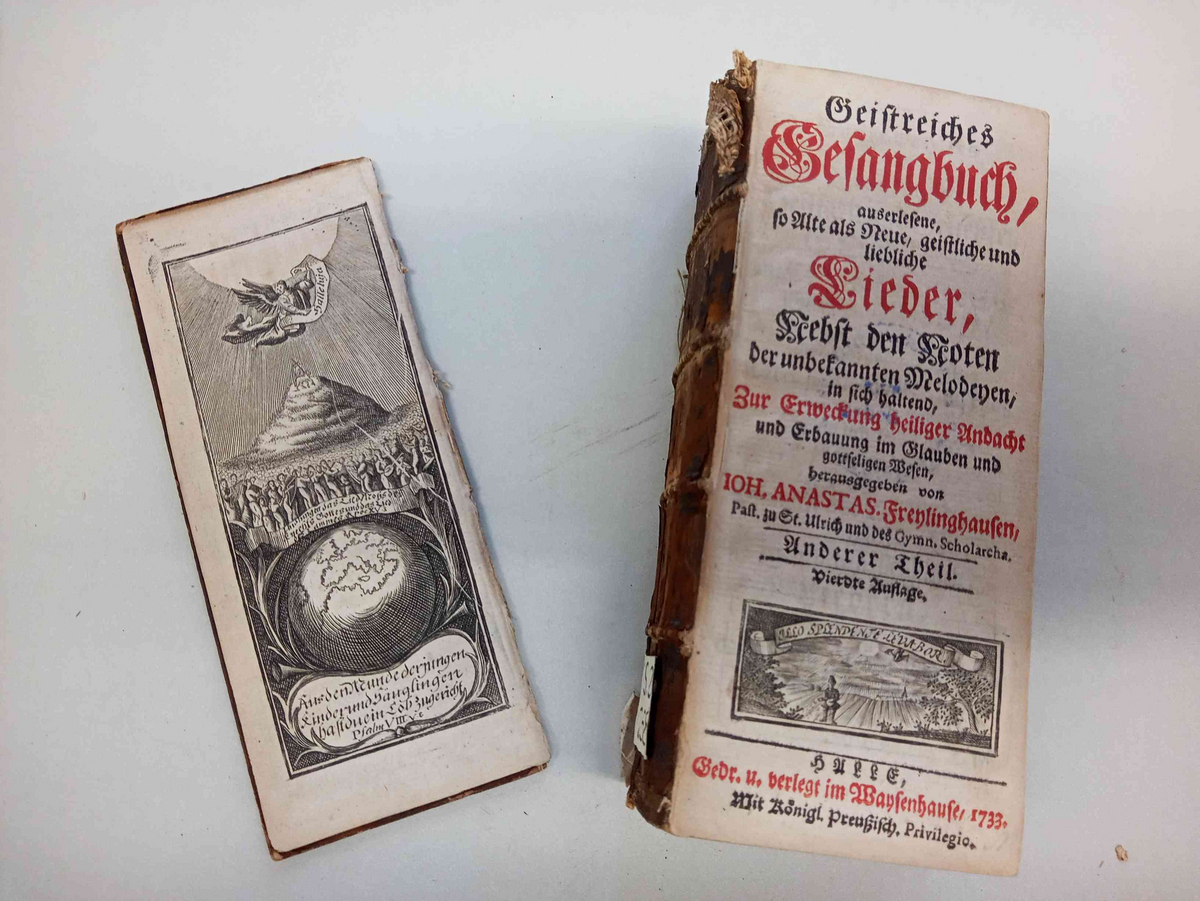 Halleluja
Aus dem Munde der jungen
Kinder und Säuglingen
hast du ein Lob zugericht
Psalm VIII
Geistreiches
Gesangbuch,
auserlesene,
so Alte als Neue, geistliche und
liebliche
Lieder,
Nebst den Noten
der unbekannten Melodeyen,
in sich haltend,
Zur Erweckung heiliger Andacht
und Erbauung im Glauben und
gottseligen Wesen,
herausgegeben von
IOH. ANASTAS. Freylinghausen,
Past. zu St. Ulrich und des Gymn. Scholarcha.
Anderer Theil.
Vierdte Auflage.
ILLO SPLENDENTE LEVABOR
HALLE,
Gedr. u. verlegt im Waysenhause, 1733.
Mit Königl. Preußisch. Privilegio.